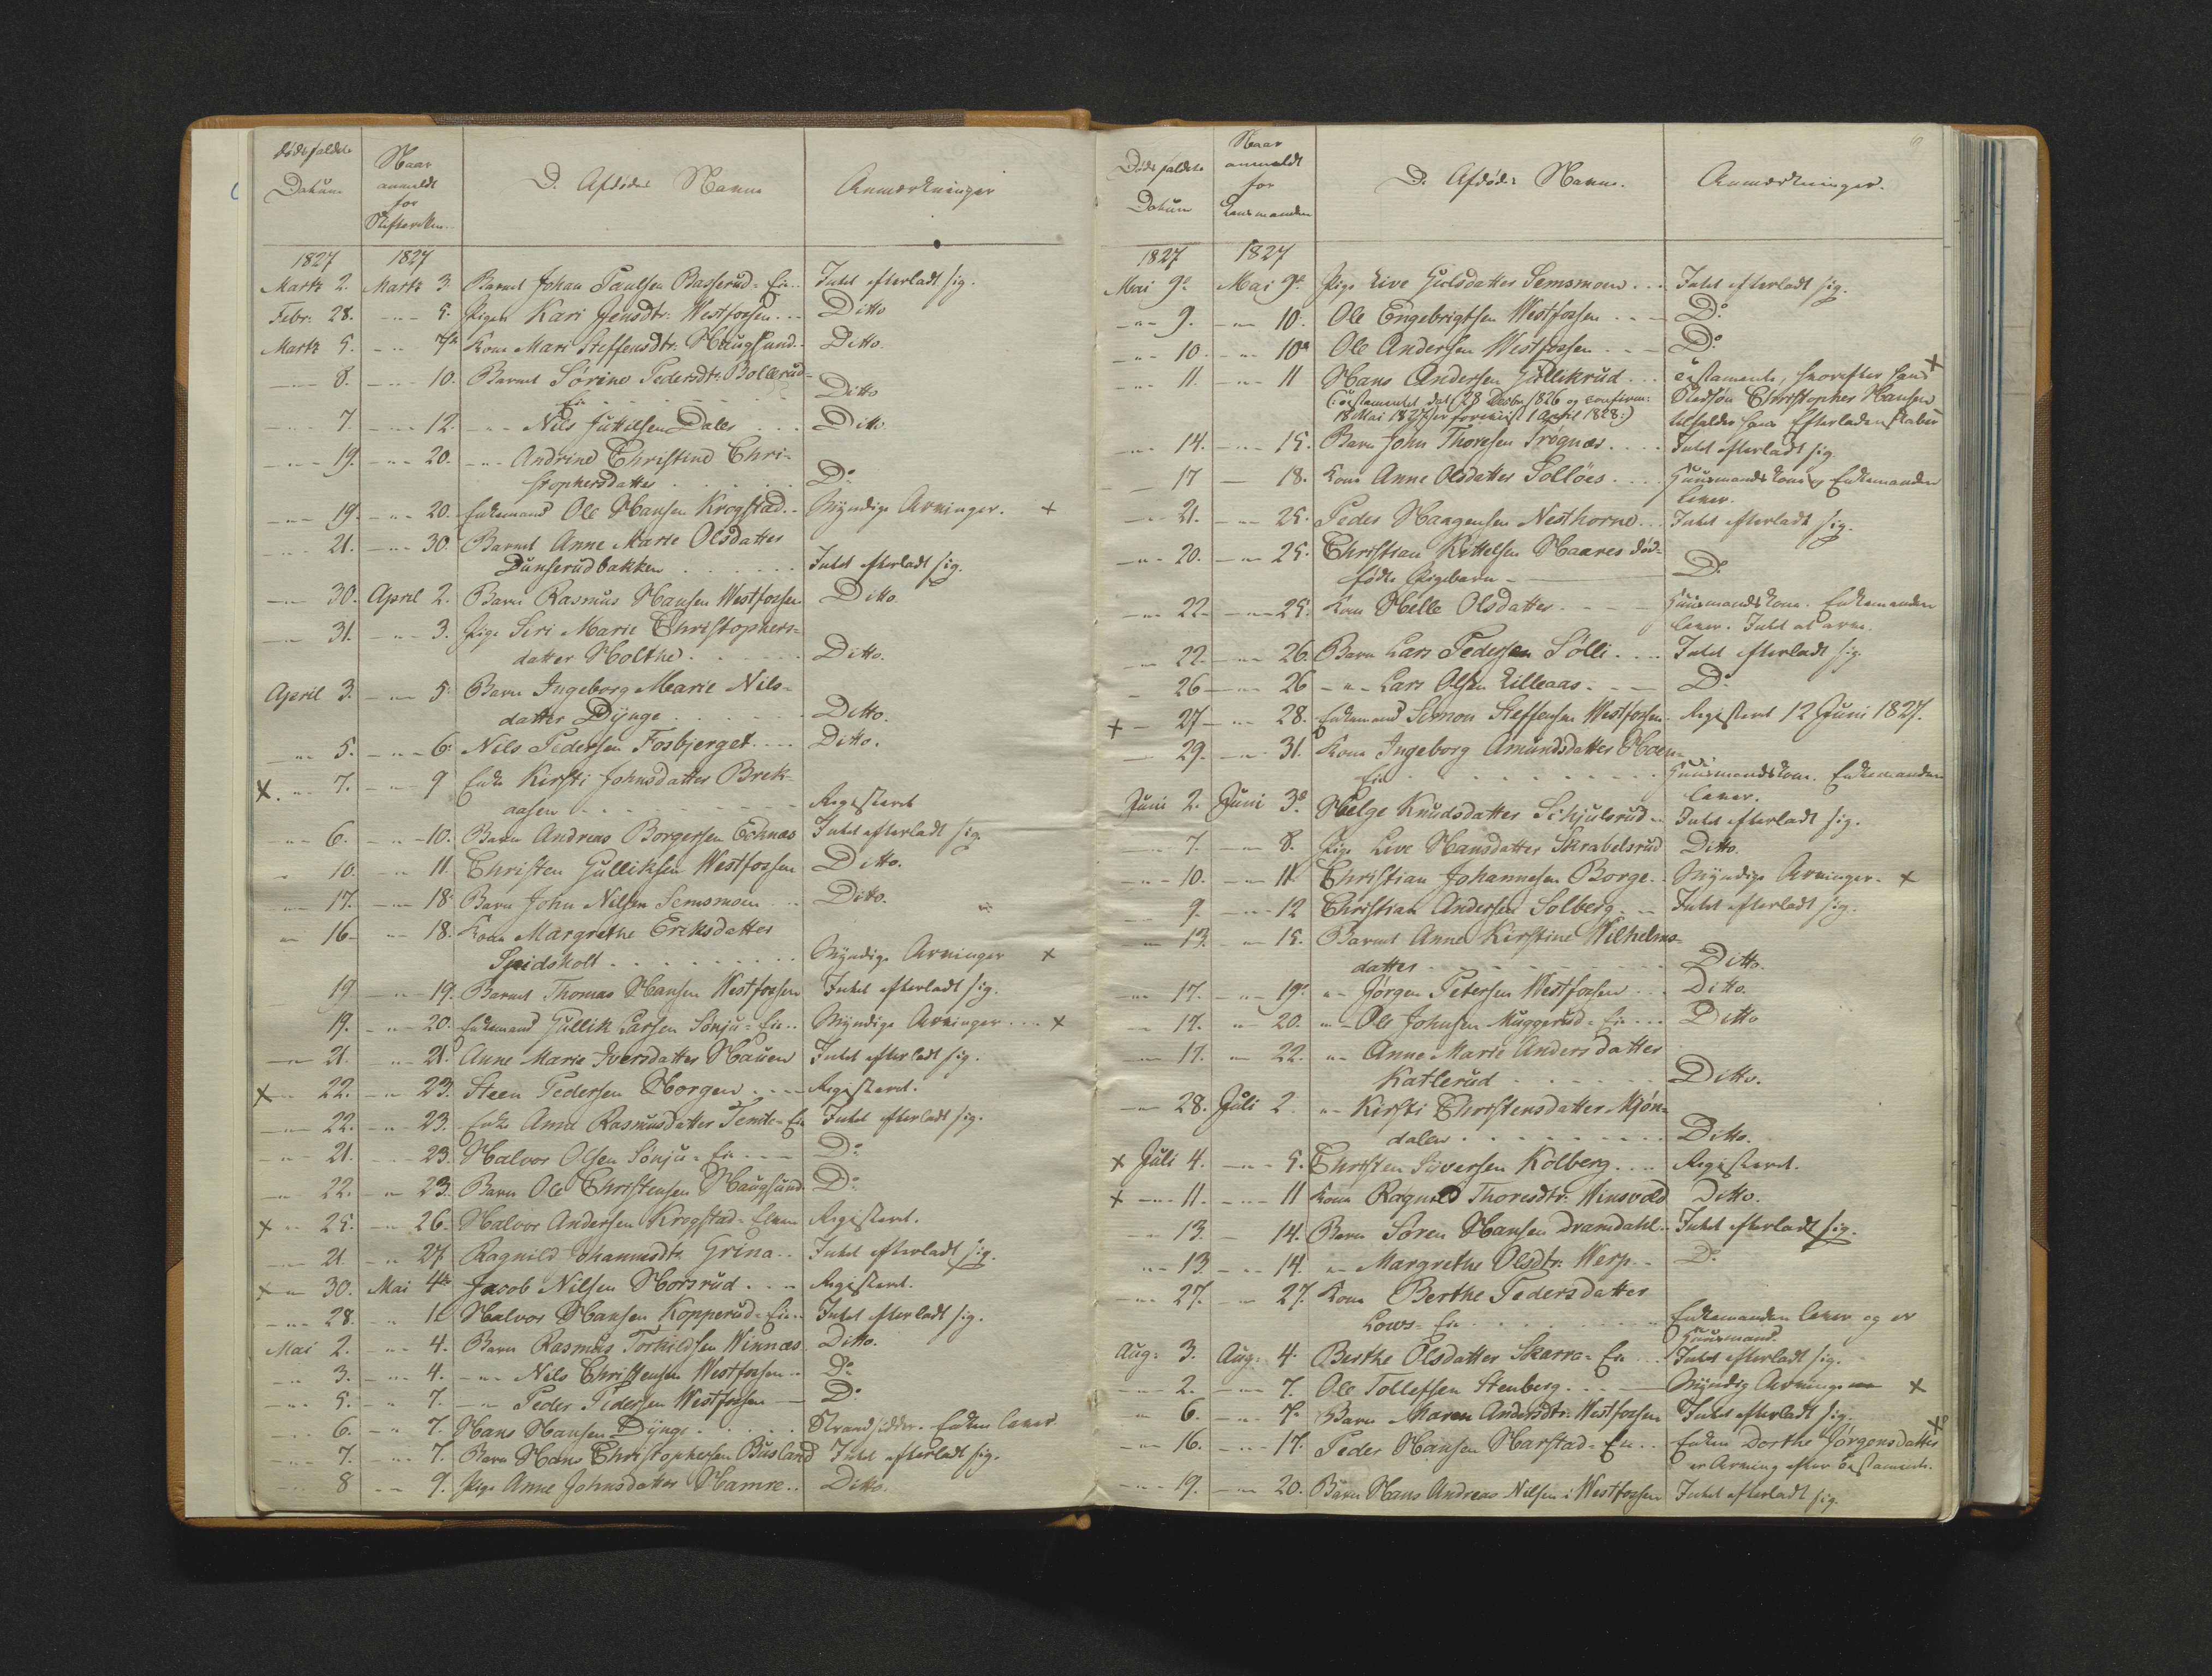 Dødsfaldets
Datum
Naar
anmeldt
for
Skifteretten
D. Afdødes Navne
Anmærkninger
1827 1827
Martz 2. Martz 3 Barnet Johan Paulsen Basserud-Eie.. Intet efterladt sig.
Febr: 28. -"- 5. Pigen Kari Jensdtr: Westfossen... Ditto
Martz 5. -"- 7de Kone Mari Steffensdtr: Haugsund.. Ditto.
-"- 8. -"- 10. Barnet Sørine Pedersdtr. Bollerud-
Eie Ditto
-"- 7. -"- 12. -"- Nils Juttilsen Daler ... Ditto
-"- 19. -"- 20. -"- Andrine Christine Chri-
stophersdatter Do
-"- 19. -"- 20. Enkemand Ole Hansen Krogstad.. Myndige Arvinger. +
-"- 21. -"- 30. Barnet Anne Marie Olsdatter
Dunserudbakken Intet efterladt sig.
-"- 30. April 2. Barn Rasmus Hansen Westfossen Ditto.
-"- 31. -"- 3. Pige Siri Marie Christophers-
datter Holthe. Ditto.
April 3. -"- 5. Barn Ingeborg Marie Nils-
datter Dynge Ditto.
-"- 5. -"- 6. Nils Pedersen Fosbjerget.... Ditto.
X. -"- 7. -"- 9 Enke Kirsti Johnsdatter Brek-
aasen Registeret
-"- 6. -"- 10. Barn Andreas Borgersen Eknæs Intet efterladt sig.
-"- 10. -"- 11. Christen Gulliksen Westfossen Ditto.
-"- 17. -"- 18. Barn John Nilsen Semsmoen .. Ditto.
-"- 16. -"- 18. Kone Margrethe Eriksdatter
Spidsholt Myndige Arvinger +
19 -"- 19. Barnet Thomas Hansen Westfossen Intet efterladt sig.
19. -"- 20. Enkemand Gullik Larsen Sønju-Eie.. Myndige Arvinger... +
-"- 21. -"- 21. Anne Marie Iversdatter Hauen Intet efterladt sig.
X -"- 22. -"- 23. Steen Pedersen Horgen .... Registeret.
-"- 22. -"- 23. Enke Anne Rasmusdatter Temte-Eie Intet efterladt sig.
-"- 21. -"- 23. Halvor Olsen Sønju-Eie... Do
-"- 22. -"- 23. Barn Ole Christensen Haugsund. Do
X -"- 25. -"- 26. Halvor Andersen Krogstad-Elven Registeret.
-"- 21. -"- 27 Ragnild Johannesdtr. Grina.. Intet efterladt sig.
X -"- 30. Mai 4de Jacob Nilsen Horsrud.... Registeret.
-"- 28. -"- Halvor Hansen Kopperud-Eie.. Intet efterladt sig.
Mai 2. -"- 4. Barn Rasmus Torkildsen Winnæs. Ditto.
-"- 3. -"- 4. -"- Nils Christensen Westfossen.. Do
-"- 5. -"- 7. -"- Peder Pedersen Westfossen — Do
-"- 6. -"- 7. Hans Hansen Dynge..... Strandsidder. Enken lever.
-"- 7. -"- 7. Barn Hans Christophersen Busland Intet efterladt sig.
8 -"- 9. Pige Anne Johnsdatter Hamre.. Ditto.
Dødsfaldets
Datum
Naar
anmeldt
for
Lensmanden
D. Afdødes Navne.
Anmærkninger.
1827 1827
Mai 9de Mai 9de Pige Live Gulsdatter Semsmoen... Intet efterladt sig.
-"- 9. -"- 10. Ole Engebrigtsen Westfossen .... Do
-"- 10. -"- 10de Ole Andersen Westfossen .... Do
-"- 11. -"- 11 Hans Andersen Gullikrud... Testamente, hvorefter hans +
(Testamentet dat: 28 Decbr 1826 og confirm: Stedsøn Christopher Hansen
18 Mai 1827 er forevist 1 April 1828:) tilfalder hans Efterladenskaber
-"- 14. -"- 15. Barn John Thoresen Trøgnæs.... Intet efterladt sig.
— 17 — 18. Kone Anne Olsdatter Solløes.... Huusmandskone, Enkemanden
lever.
-"- 21. -"- 25. Peder Haagensen Nesthorne... Intet efterladt sig.
-"- 20. -"- 25. Christian Kittelsen Haares død-
fødte Pigebarn Do
-"- 22. -"- 25. Kone Helle Olsdatter Huusmandskone. Enkemanden
lever. Intet at arve.
-"- 22. -"- 26. Barn Lars Pedersen Sølli.... Intet efterladt sig.
-"- 26 -"- 26 -"- Lars Olsen Lilleaas.... Do
+ -"- 27 -"- 28. Enkemand Simon Steffensen Westfossen. Registeret 12 Juni 1827.
-"- 29. -"- 31. Kone Ingeborg Amundsdatter Hoen-
Eie Huusmandskone. Enkemanden
lever.
Juni 2. Juni 3de Helge Knudsdatter Schjulsrud.. Intet efterladt sig.
-"- 7. -"- 8. Pige Live Hansdatter Skrabelsrud Ditto.
-"- 10. -"- 11 Christian Johannesen Borge.. Myndige Arvinger. +
-"- 9. -"- 12 Christian Andersen Solberg... Intet efterladt sig.
-"- 13. -"- 15. Barnet Anne Kirstine Wilhelms-
datter Ditto.
-"- 17. -"- 19. -"- Jørgen Petersen Westfossen... Ditto.
-"- 17. -"- 20. -"- Ole Johnsen Muggerud-Eie... Ditto
-"- 17. -"- 22. -"- Anne Marie Andersdatter
Katlerud Ditto.
-"- 28. Juli 2. -"- Kirsti Christensdatter Mjøn-
dalen Ditto.
X Juli 4. -"- 5. Christen Siversen Kolberg.... Registeret.
X -"- 11. -"- 11 Kone Ragnild Thoresdtr. Winsvold Ditto.
-"- 13. — 14. Barn Søren Hansen Dramdahl.. Intet efterladt sig.
-"- 13 -"- 14. -"- Margrethe Olsdtr. Werp.. Do
-"- 27. -"- 27. Kone Berthe Pedersdatter
Lows-Eie Enkemanden lever og er
Huusmand.
Aug: 3. Aug: 4. Berthe Olsdatter Skarra-Eie... Intet efterladt sig.
-"- 2. -"- 7. Ole Tollefsen Stenberg.... Myndig Arving +
-"- 6. -"- 7de Barn Maren Andersdtr. Westfossen Intet efterladt sig.
-"- 16. -"- 17. Peder Hansen Harstad-Eie.. Enken Dorthe Jørgensdatter +
er Arving efter Testament.
-"- 19. -"- 20. Barn Hans Andreas Nilsen i Westfossen Intet efterladt sig.